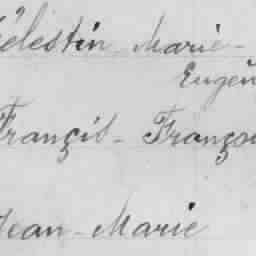 Célestin Marie-
Eugèn
Françis- Franços
Jean-Marie